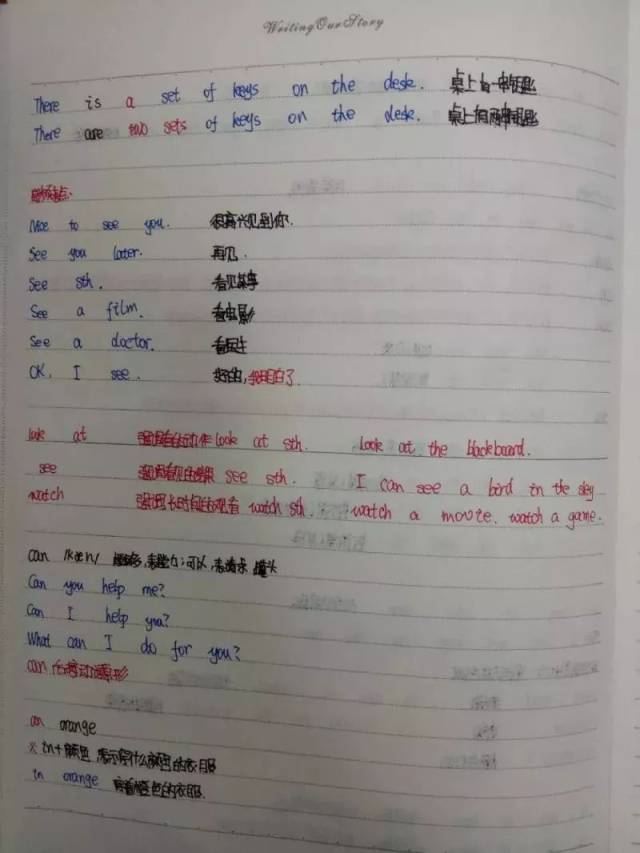 Writing Our Story
There is a set of keys on the desk. 桌上有一串钥匙
There are two sets of keys on the desk. 桌上有两串钥匙
Nice to see you. 很高兴见到你.
See you later. 再见.
See sth. 看见某事
See a film. 看电影
See a doctor. 看医生
OK, I see. 好的,我明白了.
look at 强调看的动作 look at sth. Look at the blackboard.
see 强调看见的结果 see sth. I can see a bird in the sky
watch 强调长时间的观看 watch sth. watch a movie. watch a game.
can /kæn/ 能够,表能力;可以,表请求 罐头
Can you help me?
Can I help you?
What can I do for you?
can 后接动词原形
an orange
※ in+颜色 表示穿什么颜色的衣服
in orange 穿着橙色的衣服.